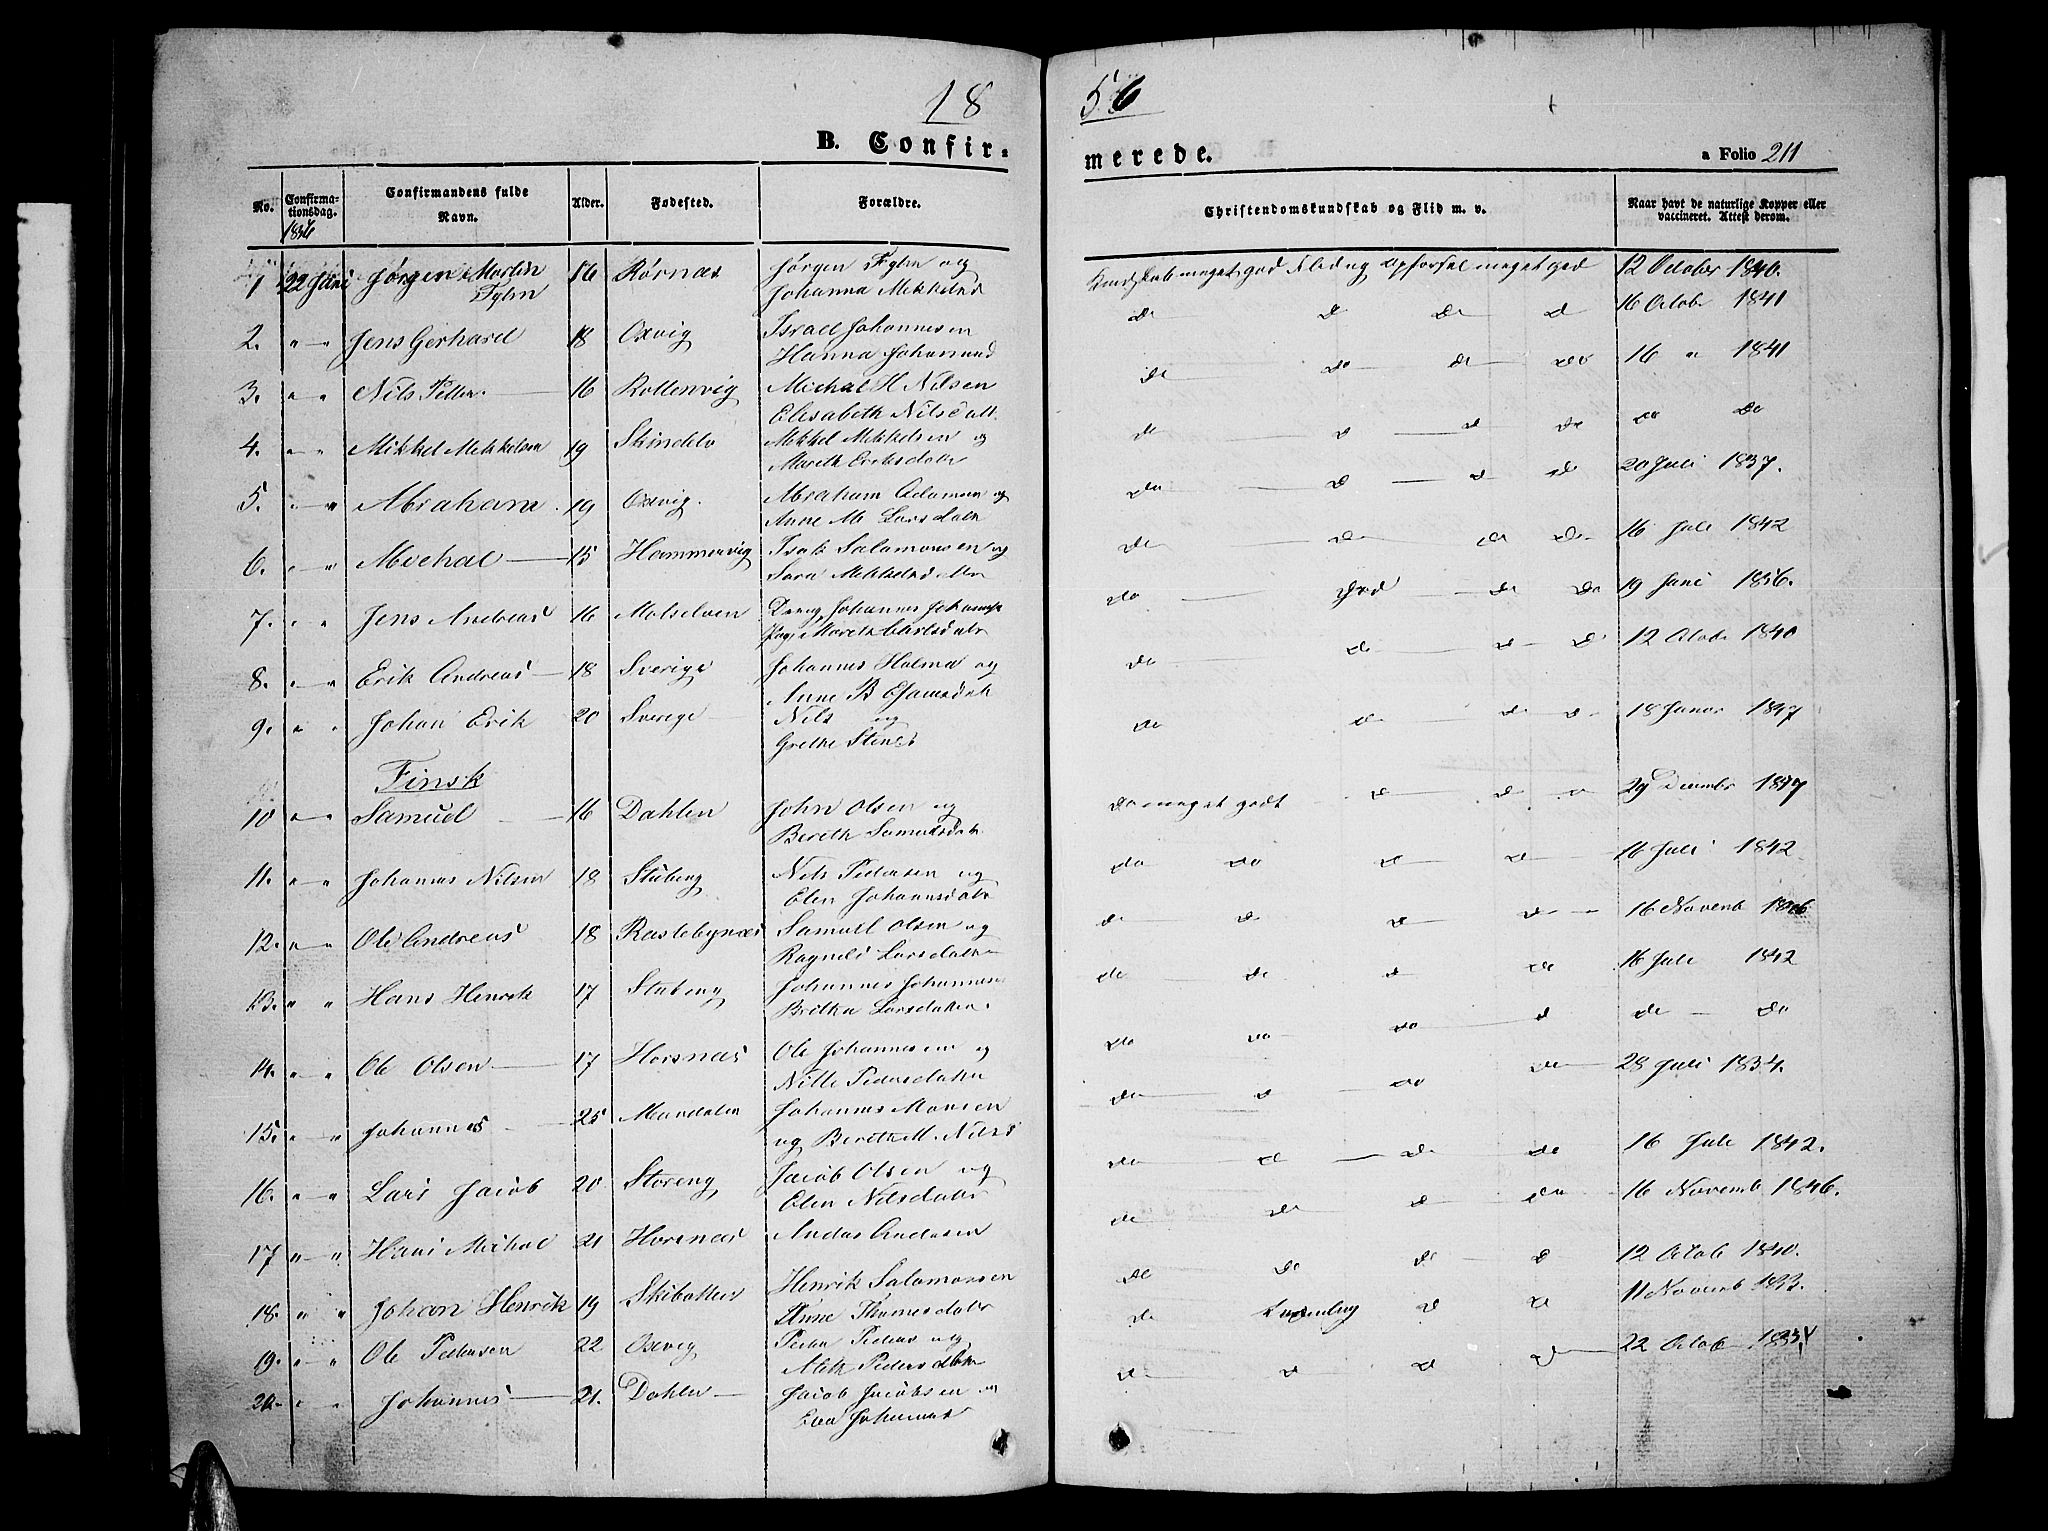 18 56
B. Confir=
merede.
a Folio 211
No.
Confirma-
tionsdag.
1856
Confirmandens fulde
Navn.
Alder.
Fødested.
Forældre.
Christendomskundskab og Flid m. v.
Naar havt de naturlige Kopper eller
vaccineret. Attest derom.
1 22 Juni Jørgen Martin 16 Rørnæs Jørgen Fyhn og Kundskab meget god Flid og Opførsel meget god 12 October 1840.
Fyhn Johanna Mikkelsd
2. " " Jens Gerhard 18 Oxvig Israel Johannesen do do do do 16 Octobr 1841
Hanna Johannesd
3. " " Nils Petter 16 Kollenvig Michal H Nilsen do do do do 16 " 1841
Elisabeth Nilsdatt.
4. " " Mikkel Mikkelsen 19 Skindelv Mikkel Mikkelsen og do do do do do do
Marith Eriksdatr
5. " " Abraham 19 Oxvig. Abraham Adamsen og do do do do 20 Juli 1837.
Anne M. Larsdatr
6. " " Michal 15 Hammervig Isak Salamonsen og do do do do 16 Juli 1842
Sara Mikkelsd
7. " " Jens Andreas 16 Malselven Johannes do God do do 19 Juni 1856.
Pige Marith Carlsdatr
8. " " Erik Andreas 18 Sverige Johannes Halma og do do do do 12 Octobr 1840
Anne B
9. " " Johan Erik 20 Sverige Nils og do do do do 18 Januar 1847
Grethe Stine
Finsk
10 " " Samuel 16 Dahlen John Olsen og do meget godt do do do 29 Decembr 1847
Bereth Samuelsdatr
11. " " Johannes Nilsen 18 Stubeng Nils Pedersen og do do do do 16 Juli 1842
Elen Johannsdatr
12. " " Ole Andreas 18 Rastebynæs Samuel Olsen og do do do do 16 Novemb 1846
Ragnild Larsdatr
13. " " Hans Henrik 17 Stubeng Johannes Johannes do do do do 16 Juli 1842
Britha Larsdatter.
14. " " Ole Olsen 17 Horsnæs Ole Johannesen og do do do do do do
Nille Pedersdatter
15. " " Johannes 25 Mandalen Johannes Monsen do do do do 28 Juli 1834.
og Berith M. Nilsd
16. " " Lars Jacob 20 Storeng Jacob Olsen og do do do do 16 Juli 1842.
Elen Nilsdatr
17 " " Hans Michal 21 Horsnæs Andas Andersen do do do do 16 Novemb 1846.
18. " " Johan Henrik 19 Skibotten Henrik Salamonsen do do do do 12 Octob 1840.
Anne Thomesdatr
19. " " Ole Pedersen 22 Oxvig Peder Peders og do do do 11 Novemb 1833.
Pedersdatr
20. " " Johannes 21. Dahlen Jacob Jacobsen og do do do do 22 Octob
Elen Johannes